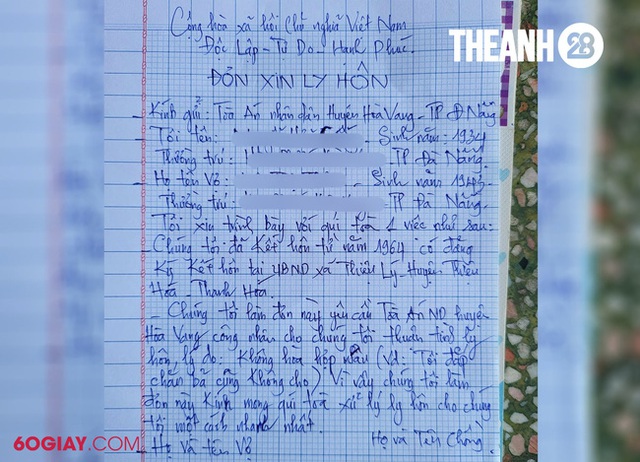 Cộng hòa xã hội Chủ nghĩa Việt Nam
Độc Lập - Tự Do - Hạnh Phúc.
THEANH28
ĐƠN XIN LY HÔN
- Kính gửi: Tòa Án nhân dân Huyện Hòa Vang - TP Đ Nẵng
- Tôi tên: - Sinh năm: 1934
Thường trú: TP Đà Nẵng.
- Họ tên Vợ: - Sinh năm 1943.
Thường trú: TP Đà Nẵng.
Tôi xin trình bày với quí tòa 1 việc như sau:
- Chúng tôi đã Kết hôn từ năm 1964 có đăng
Ký Kết hôn tại UBND xã Thiệu Lý, Huyện Thiệu
Hóa, Thanh Hóa.
- Chúng tôi làm đơn này yêu cầu Tòa Án ND huyện
Hòa Vang công nhận cho chúng tôi thuận tình ly
hôn, lí do: Không hòa hợp nhau (Vd: Tôi đắp
chăn bà cũng Không cho) Vì vậy chúng tôi làm
đơn này Kính mong quí tòa xử lý ly hôn cho chúng
tôi một cách nhanh nhất.
- Họ và tên Vợ Họ và Tên Chồng.
60GIAY.COM